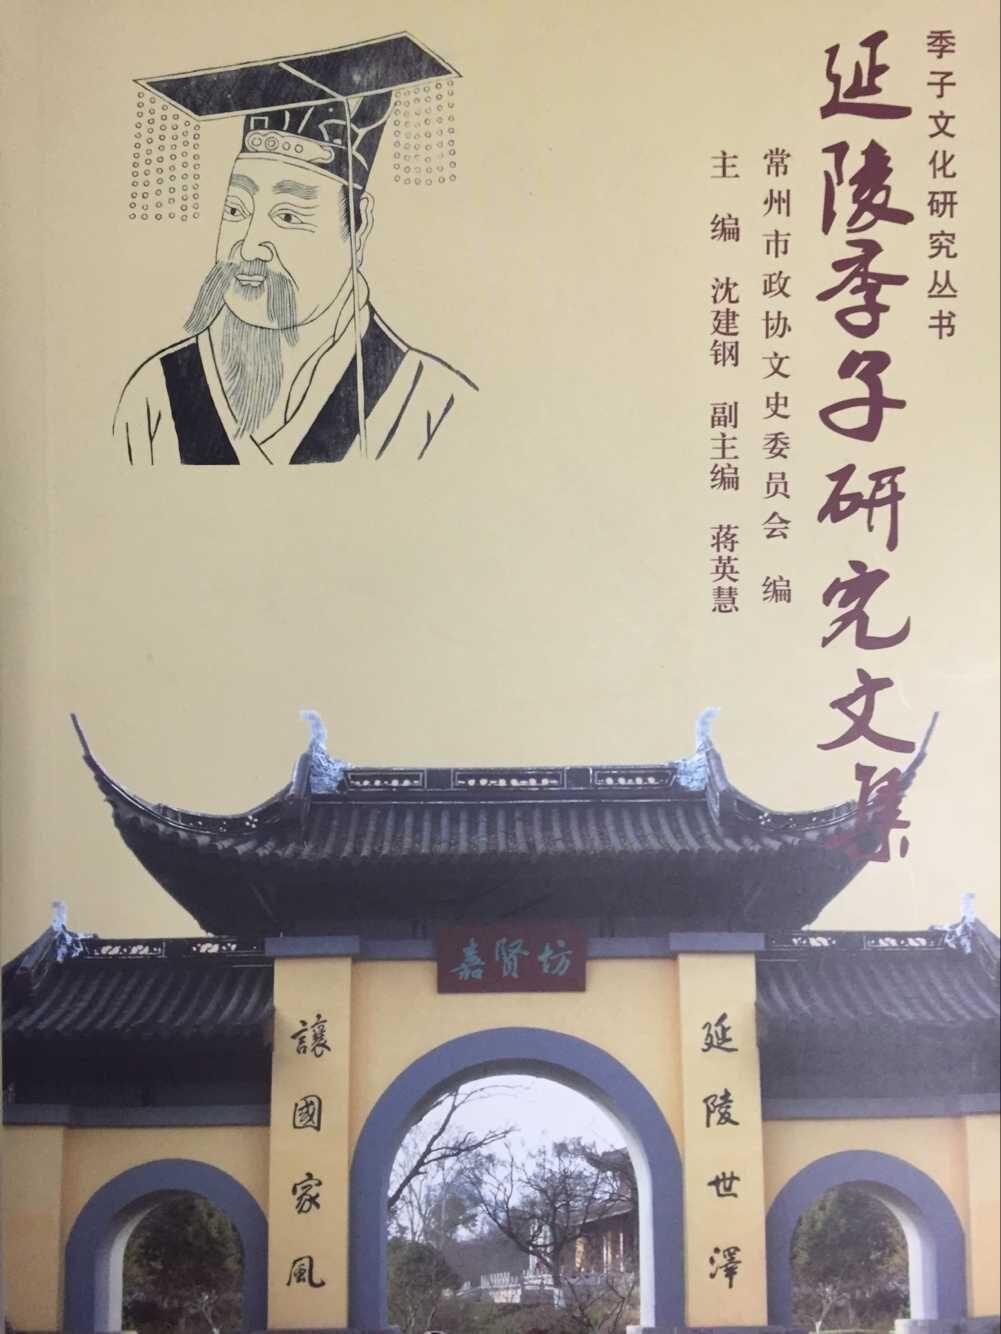 季子文化研究丛书
延陵季子研究文集
常州市政协文史委员会 编
主 编 沈建钢 副主编 蒋英慧
嘉贤坊
延陵世澤
讓國家風